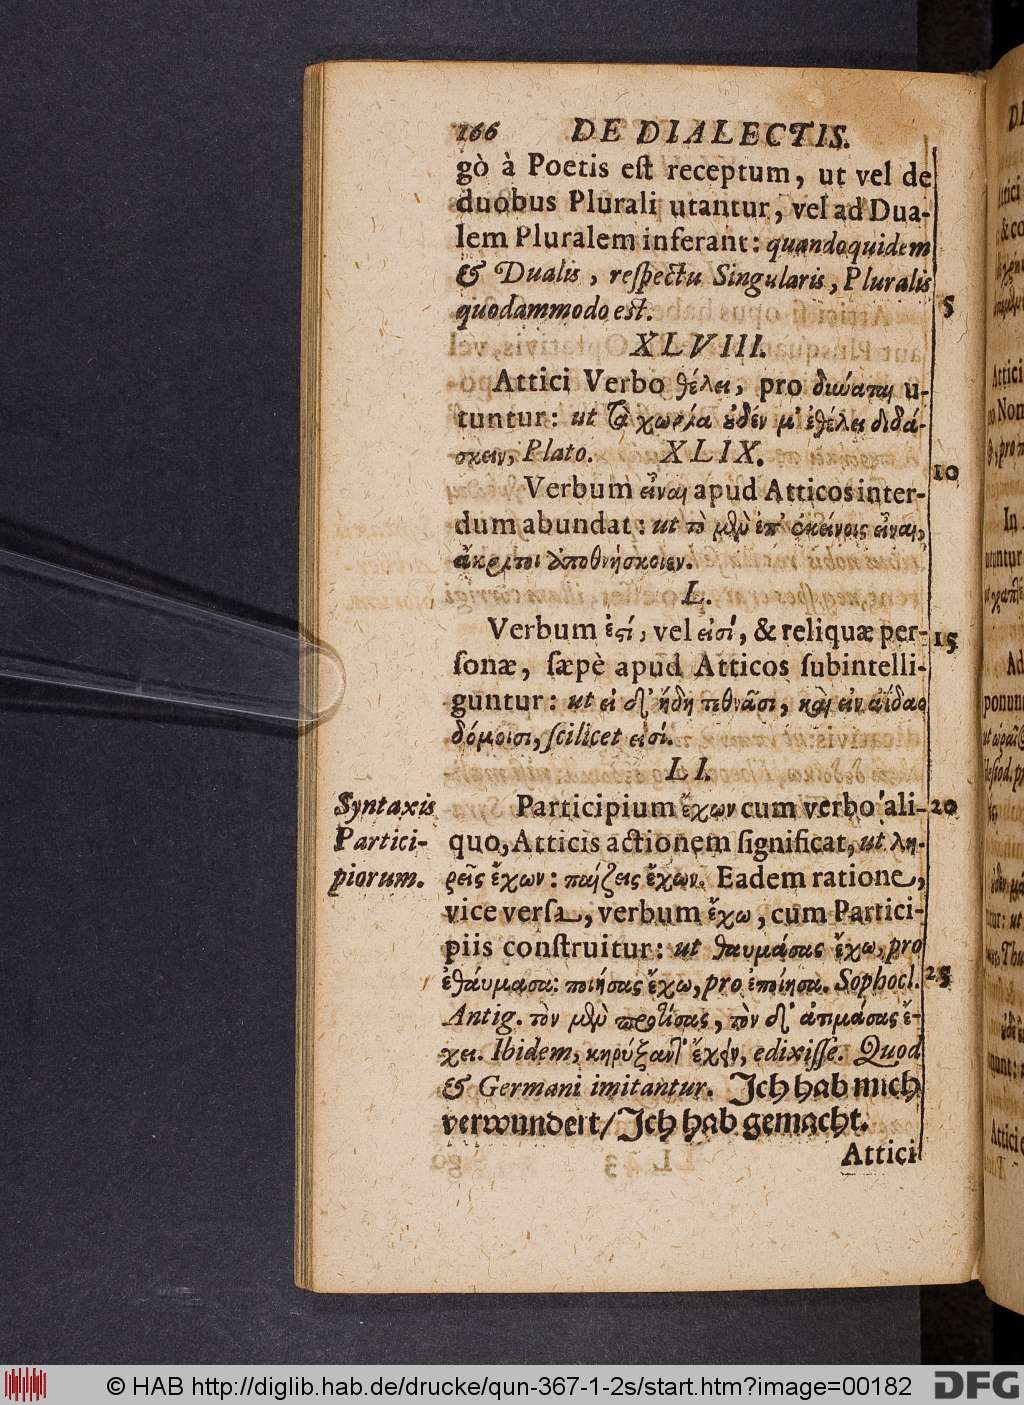 166 DE DIALECTIS.
gò à Poetis est receptum, ut vel de
duobus Plurali utantur, vel ad Dua-
lem Pluralem inferant: quandoquidem
& Dualis, respectu Singularis, Pluralis
quodammodo est. 5
XLVIII.
Attici Verbo θέλει, pro δύναται u-
tuntur: ut Τὰ χωρία οὐδέν μ' ἐθέλει διδά-
σκειν, Plato. XLIX. 10
Verbum εἶναι apud Atticos inter-
dum abundat: ut τὸ μὲν ἐπ' ἐκείνοις εἶναι,
ἄκριτοι ἀποθνήσκοιεν.
L.
Verbum ἐστί, vel εἰσί, & reliquæ per- 15
sonæ, sæpè apud Atticos subintelli-
guntur: ut εἰ δ' ἤδη τεθνᾶσι, καὶ εἰν ἀΐδαο
δόμοισι, scilicet εἰσί.
LI.
Syntaxis Partici- piorum.
Participium ἔχων cum verbo ali- 20
quo, Atticis actionem significat, ut λη-
ρεῖς ἔχων: παίζεις ἔχων. Eadem ratione,
vice versa, verbum ἔχω, cum Partici-
piis construitur: ut θαυμάσας ἔχω, pro
ἐθάυμασα: ποιήσας ἔχω, pro ἐποίησα. Sophocl. 25
Antig. τὸν μὲν προτίσας, τὸν δ' ἀτιμάσας ἔ-
χει. Ibidem, κηρύξαντ' ἔχειν, edixisse. Quod
& Germani imitantur. Ich hab mich
verwundert/ Ich hab gemacht.
Attici
© HAB http://diglib.hab.de/drucke/qun-367-1-2s/start.htm?image=00182 DFG